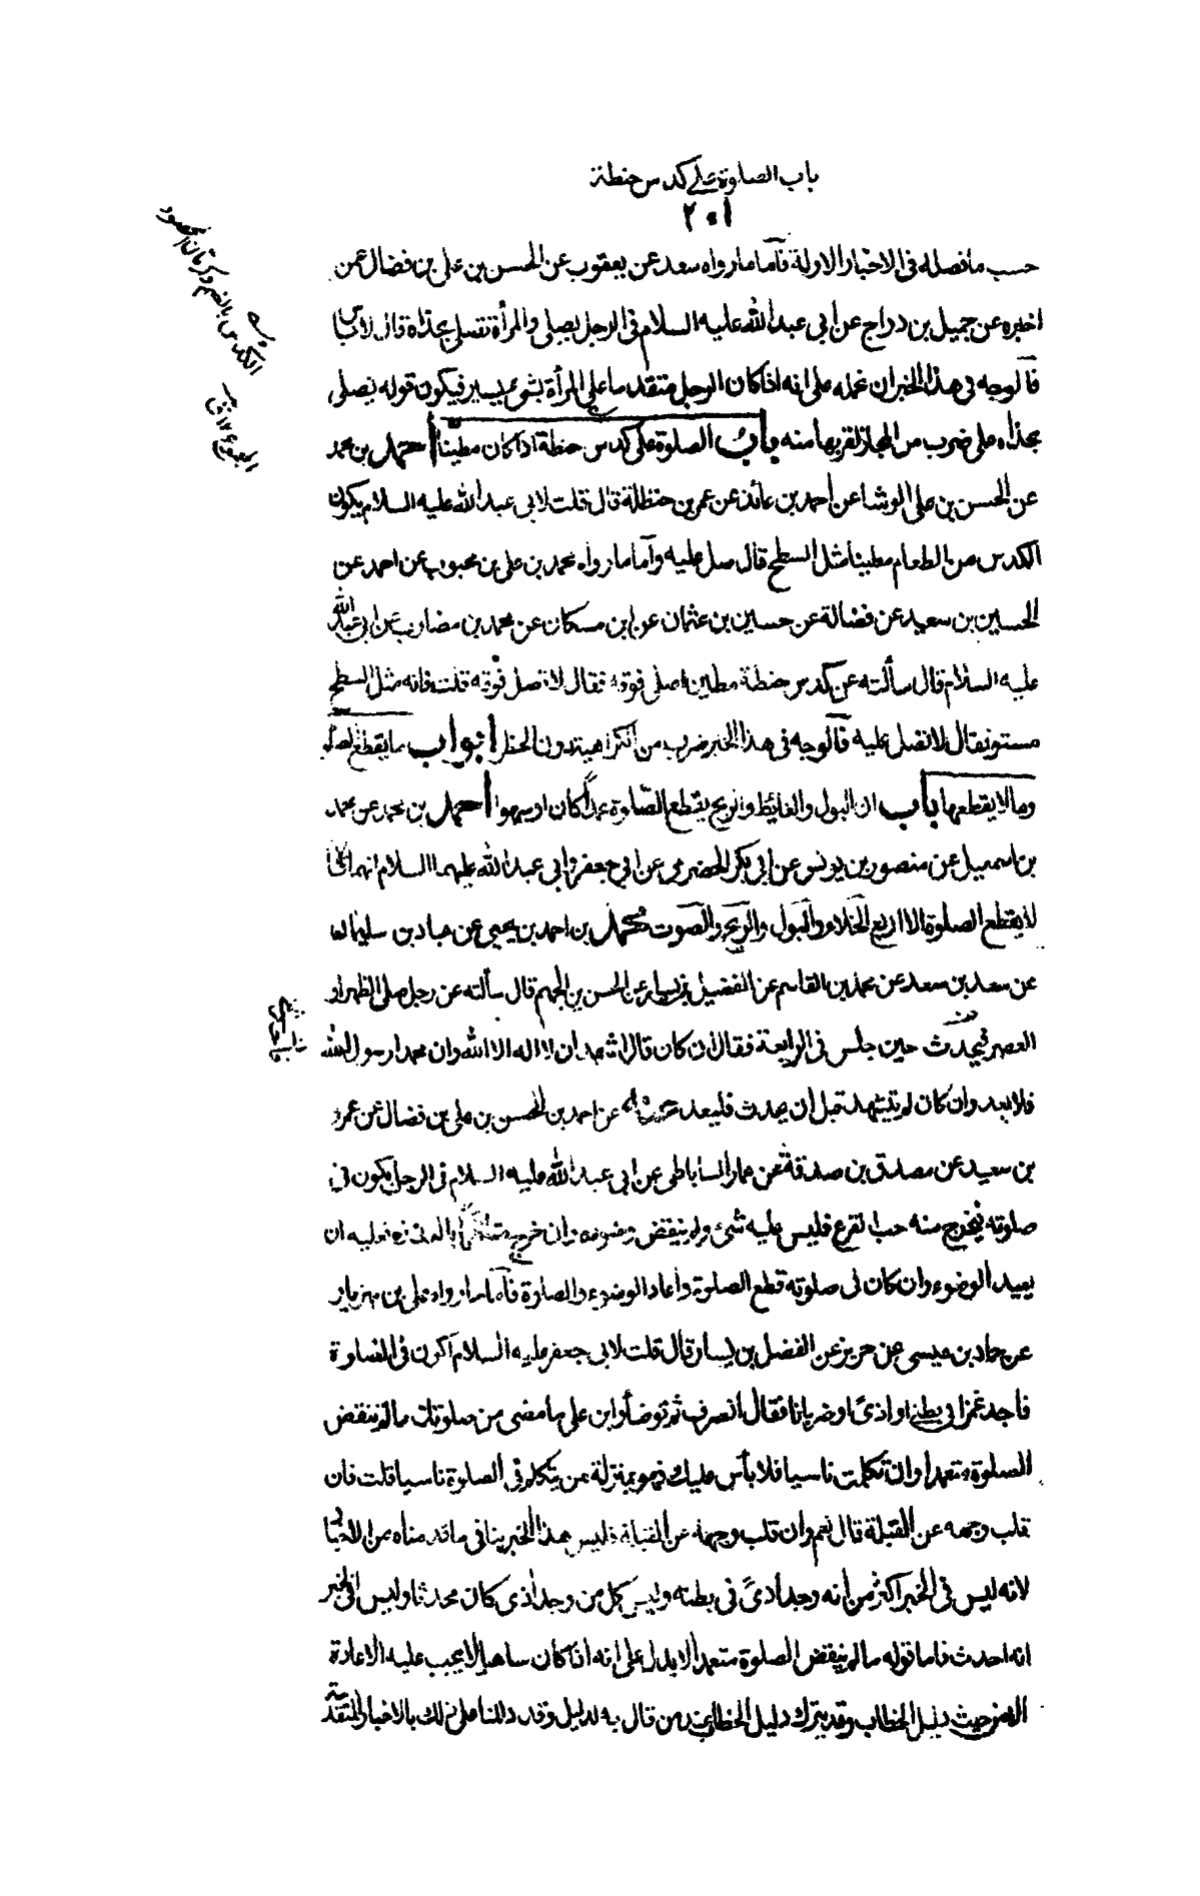 باب الصلوة على كدس حنطة
٢٠١
حسب ما فصله فى الاخبار الاولة فآما ما رواه سعد عن يعقوب عن الحسن بن على بن فضال عمن
اخبره عن جميل بن دراج عن ابى عبد الله عليه السلام فى الرجل يصلى والمرأة تصلى بحذاه قال لاباس
فآلوجه فى هذا الخبر ان نحمله على انه اذا كان الرجل متقدما على المرأة بشئ يسير فيكون قوله يصلى
بحذاه على ضرب من المجاز لقربها منه باب الصلوة على كدس حنطة اذا كان مطينا احمد بن محمد
عن الحسن بن على الوشا عن احمد بن عائذ عن عمر بن حنظلة قال قلت لابى عبد الله عليه السلام يكون
الكدس من الطعام مطينا مثل السطح قال صل عليه وآما ما رواه محمد بن على بن محبوب عن احمد عن
الحسين بن سعيد عن فضالة عن حسين بن عثمان عن ابن مسكان عن محمد بن مضارب عن ابى عبد الله
عليه السلام قال سألته عن كدس حنطة مطين اصلى فوقه فقال لا تصل فوقه قلت فانه مثل السطح
مستو فقال لا تصل عليه فآلوجه فى هذا الخبر ضرب من الكراهية دون الحظر ابواب ما يقطع الصلوة
وما لا يقطعها باب ان البول والغائط والريح يقطع الصلوة عمدا كان او سهوا احمد بن محمد عن محمد
بن اسمعيل عن منصور بن يونس عن ابى بكر الحضرمى عن ابى جعفر وابى عبد الله عليهما السلام انهما قالا
لا يقطع الصلوة الا اربع الخلاء والبول والريح والصوت محمد بن احمد بن يحيى عن عباد بن سليمان
عن سعد بن سعد عن محمد بن القاسم عن الفضيل بن يسار عن الحسن بن الجهم قال سألته عن رجل صلى الظهر او
العصر فيحدث حين جلس فى الرابعة فقال ان كان قال اشهد ان لا اله الا الله وان محمدا رسول الله
فلا يعد وان كان لم يتشهد قبل ان يحدث فليعد عن احمد بن الحسن بن على بن فضال عن عمرو
بن سعيد عن مصدق بن صدقة عن عمار الساباطى عن ابى عبد الله عليه السلام فى الرجل يكون فى
صلوته فيخرج منه حب القرع فليس عليه شئ ولم ينقض وضوءه وان خرج متلطخا بالعذرة فعليه ان
يعيد الوضوء وان كان فى صلوته قطع الصلوة واعاد الوضوء والصلوة فآما ما رواه على بن مهزيار
عن حماد بن عيسى عن حريز عن الفضل بن يسار قال قلت لابى جعفر عليه السلام اكون فى الصلوة
فاجد غمزا فى بطنى او اذى او ضربانا فقال انصرف ثم توضأ وابن على ما مضى من صلوتك ما لم ينقض
الصلوة متعمدا وان تكلمت ناسيا فلا بأس عليك فهو بمنزلة من يتكلم فى الصلوة ناسيا قلت فان
قلب وجهه عن القبلة قال نعم وان قلب وجهه عن القبلة فليس هذا الخبر ينافى ما قدمناه من الاخبار
لانه ليس فى الخبر اكثر من انه وجد اذى فى بطنه وليس كل من وجد اذى كان محدثا وليس فى الخبر
انه احدث فاما قوله ما لم ينقض الصلوة متعمدا لا يدل على انه اذا كان ساهيا لا يجب عليه الاعادة
الا من حيث دليل الخطاب وقد يترك دليل الخطاب عند من قال به لدليل وقد دللنا على ذلك بالاخبار المتقدمة
الكدس بالضم وكرمان الحب المحصود